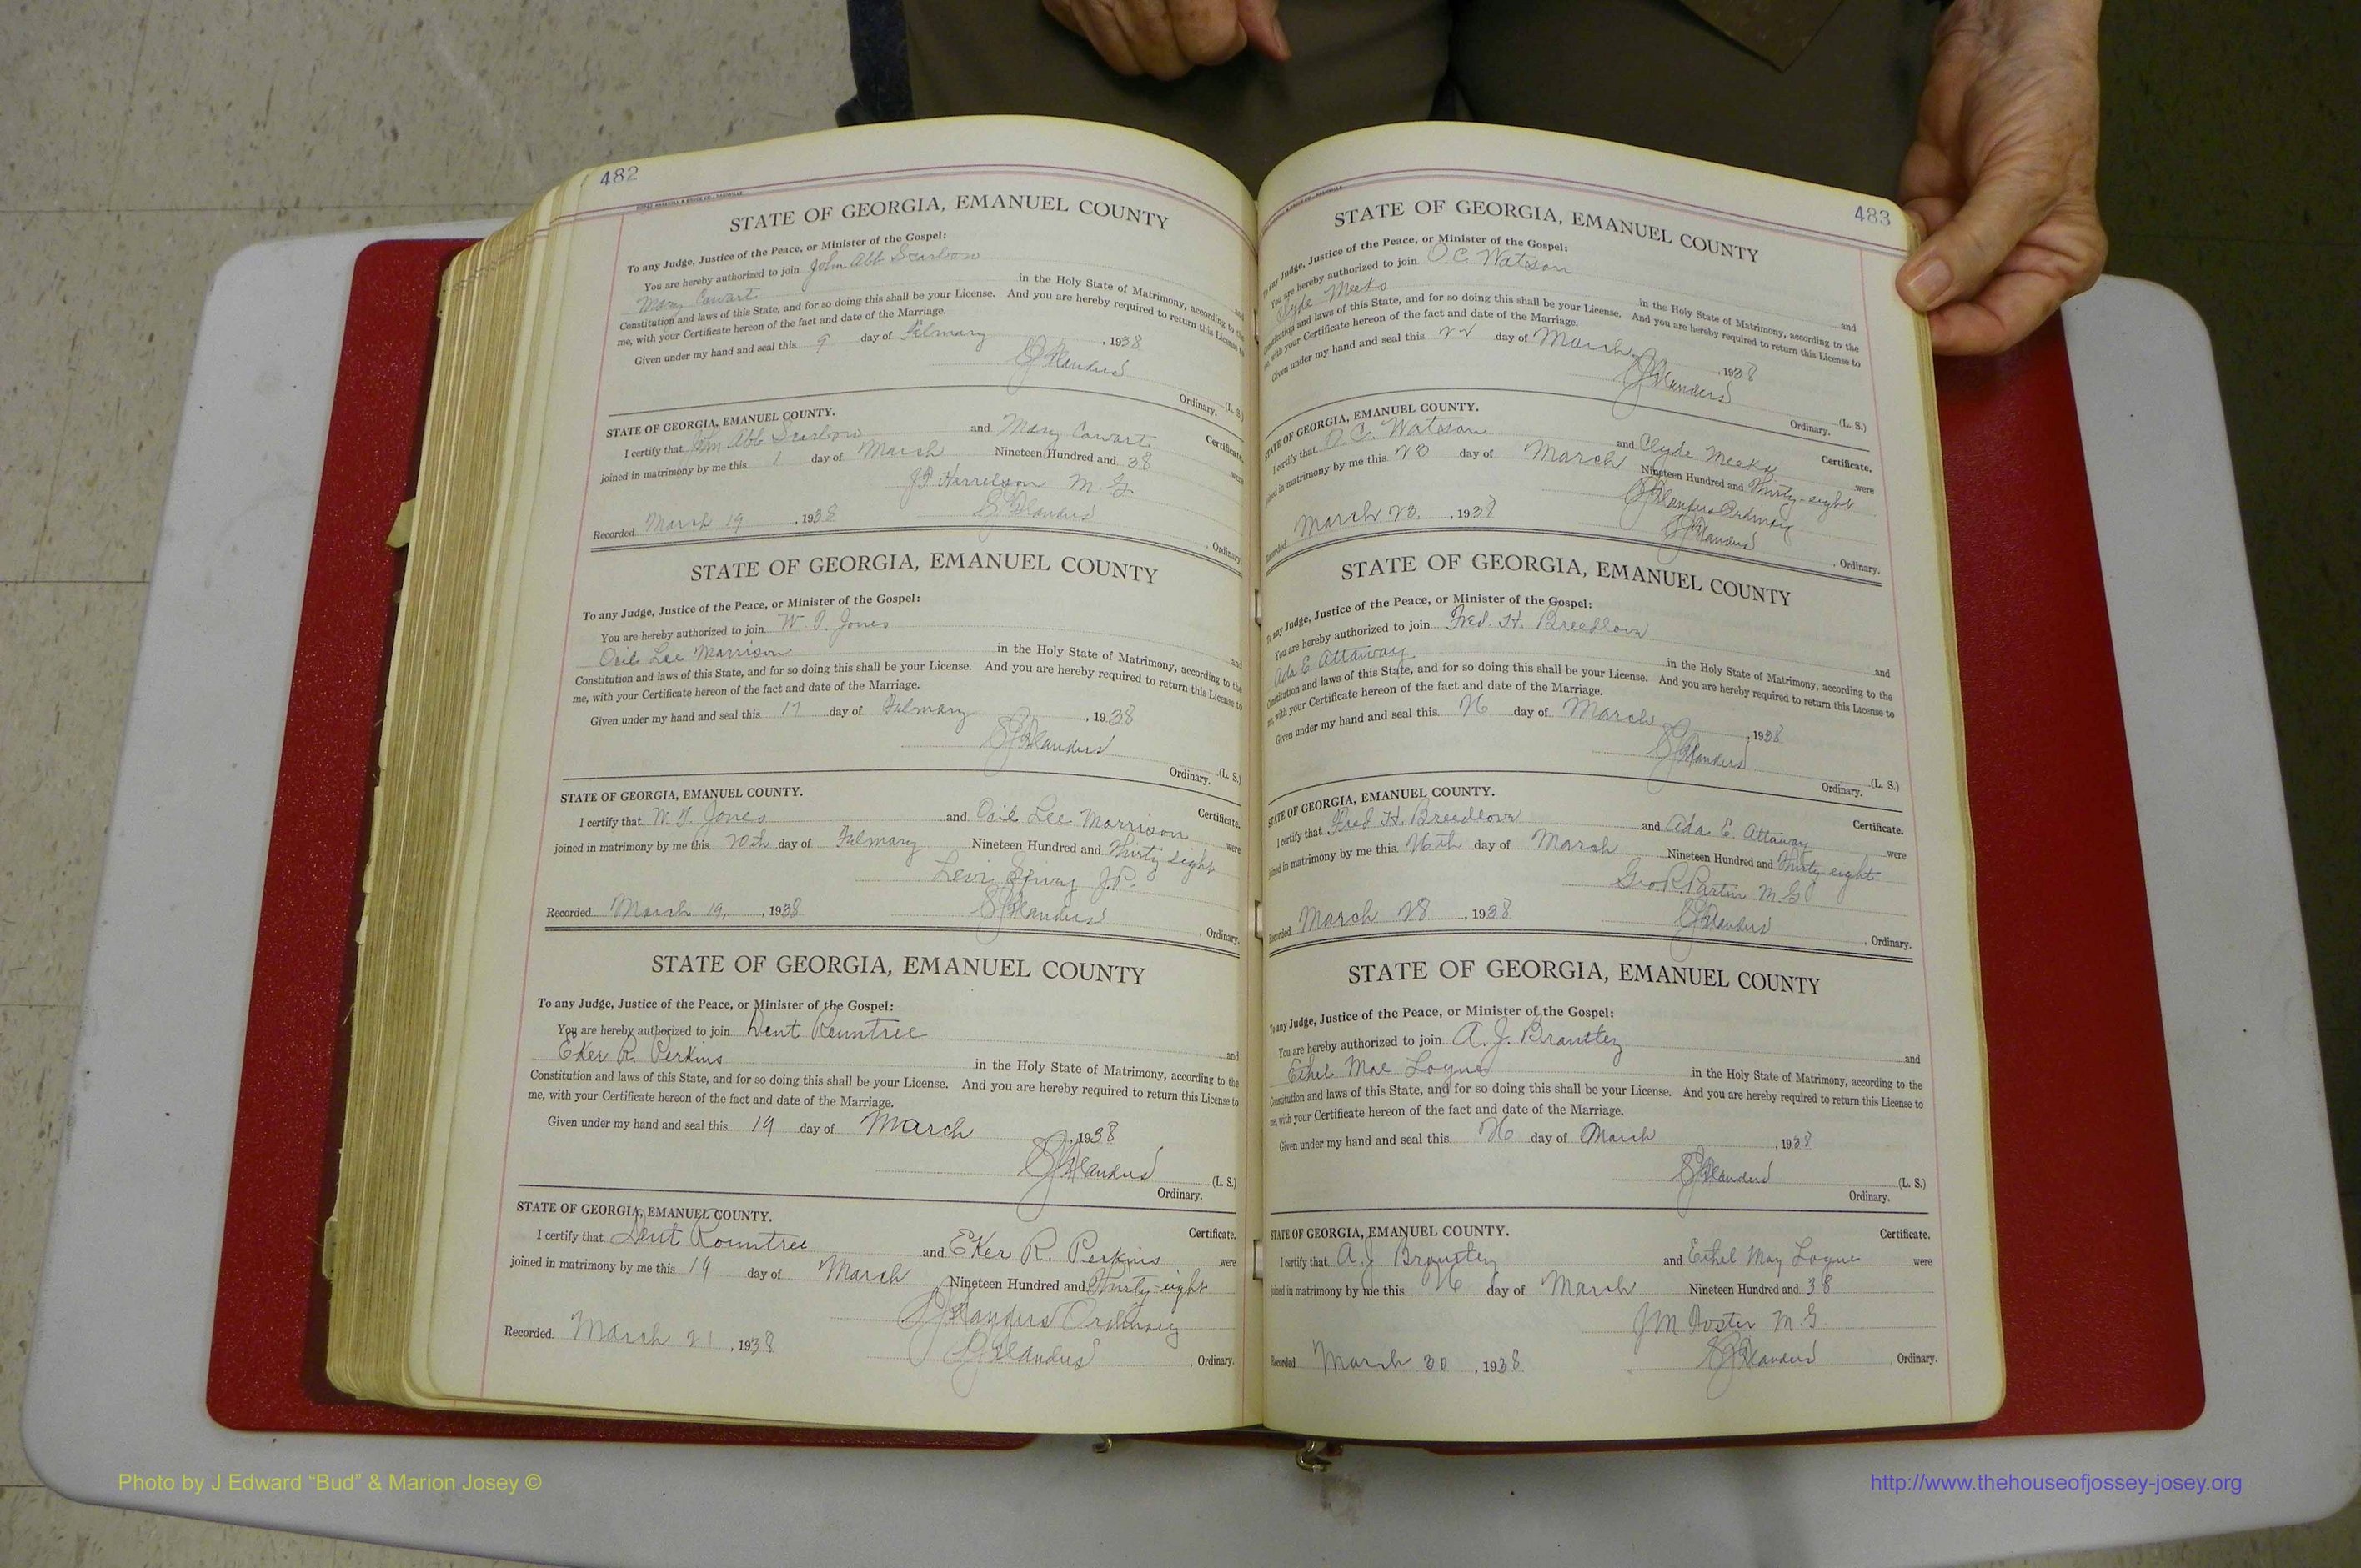 482
STATE OF GEORGIA, EMANUEL COUNTY
To any Judge, Justice of the Peace, or Minister of the Gospel:
You are hereby authorized to join John Abb Scarboro and
Mary Cowart in the Holy State of Matrimony, according to the
Constitution and laws of this State, and for so doing this shall be your License. And you are hereby required to return this License to
me, with your Certificate hereon of the fact and date of the Marriage.
Given under my hand and seal this 9 day of February, 1938
Flanders (L. S.)
Ordinary.
STATE OF GEORGIA, EMANUEL COUNTY. Certificate.
I certify that John Abb Scarboro and Mary Cowart were
joined in matrimony by me this 1 day of March Nineteen Hundred and 38
Harrelson M. G.
Recorded March 19, 1938 Flanders, Ordinary.
STATE OF GEORGIA, EMANUEL COUNTY
To any Judge, Justice of the Peace, or Minister of the Gospel:
You are hereby authorized to join W. T. Jones and
Lee Morrison in the Holy State of Matrimony, according to the
Constitution and laws of this State, and for so doing this shall be your License. And you are hereby required to return this License to
me, with your Certificate hereon of the fact and date of the Marriage.
Given under my hand and seal this 17 day of February, 1938
Flanders (L. S.)
Ordinary.
STATE OF GEORGIA, EMANUEL COUNTY. Certificate.
I certify that W. T. Jones and Lee Morrison were
joined in matrimony by me this 20th day of February Nineteen Hundred and Thirty eight
Levi Spivey J.P.
Recorded March 19, 1938 Flanders, Ordinary.
STATE OF GEORGIA, EMANUEL COUNTY
To any Judge, Justice of the Peace, or Minister of the Gospel:
You are hereby authorized to join Dent Rountree and
Eker R. Perkins in the Holy State of Matrimony, according to the
Constitution and laws of this State, and for so doing this shall be your License. And you are hereby required to return this License to
me, with your Certificate hereon of the fact and date of the Marriage.
Given under my hand and seal this 19 day of March, 1938
Flanders (L. S.)
Ordinary.
STATE OF GEORGIA, EMANUEL COUNTY. Certificate.
I certify that Dent Rountree and Eker R. Perkins were
joined in matrimony by me this 19 day of March Nineteen Hundred and Thirty-eight
Flanders Ordinary
Recorded March 21, 1938 Flanders, Ordinary.
483
STATE OF GEORGIA, EMANUEL COUNTY
To any Judge, Justice of the Peace, or Minister of the Gospel:
You are hereby authorized to join O. C. Watson and
Clyde Meeks in the Holy State of Matrimony, according to the
Constitution and laws of this State, and for so doing this shall be your License. And you are hereby required to return this License to
me, with your Certificate hereon of the fact and date of the Marriage.
Given under my hand and seal this 22 day of March, 1938
Flanders (L. S.)
Ordinary.
STATE OF GEORGIA, EMANUEL COUNTY. Certificate.
I certify that O. C. Watson and Clyde Meeks were
joined in matrimony by me this 23 day of March Nineteen Hundred and Thirty-eight
Flanders Ordinary
Recorded March 23, 1938 Flanders, Ordinary.
STATE OF GEORGIA, EMANUEL COUNTY
To any Judge, Justice of the Peace, or Minister of the Gospel:
You are hereby authorized to join Fred. H. Breedlove and
Ada E. Attaway in the Holy State of Matrimony, according to the
Constitution and laws of this State, and for so doing this shall be your License. And you are hereby required to return this License to
me, with your Certificate hereon of the fact and date of the Marriage.
Given under my hand and seal this 26 day of March, 1938
Flanders (L. S.)
Ordinary.
STATE OF GEORGIA, EMANUEL COUNTY. Certificate.
I certify that Fred H. Breedlove and Ada E. Attaway were
joined in matrimony by me this 26th day of March Nineteen Hundred and Thirty-eight
Geo R. Partin M G
Recorded March 28, 1938 Flanders, Ordinary.
STATE OF GEORGIA, EMANUEL COUNTY
To any Judge, Justice of the Peace, or Minister of the Gospel:
You are hereby authorized to join A. J. Brantley and
Ethel Mae Logue in the Holy State of Matrimony, according to the
Constitution and laws of this State, and for so doing this shall be your License. And you are hereby required to return this License to
me, with your Certificate hereon of the fact and date of the Marriage.
Given under my hand and seal this 26 day of March, 1938
Flanders (L. S.)
Ordinary.
STATE OF GEORGIA, EMANUEL COUNTY. Certificate.
I certify that A. J. Brantley and Ethel May Logue were
joined in matrimony by me this 26 day of March Nineteen Hundred and 38
J M Foster M. G.
Recorded March 30, 1938 Flanders, Ordinary.
Photo by J Edward “Bud” & Marion Josey ©
http://www.thehouseofjossey-josey.org